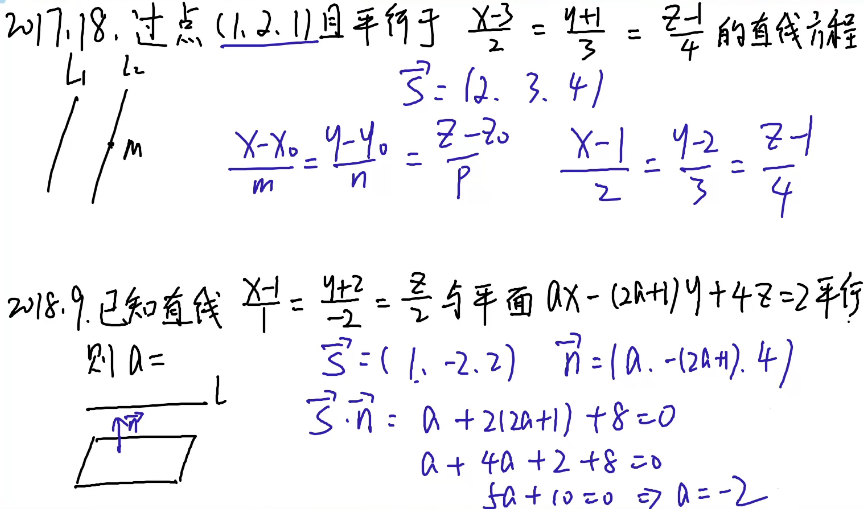 2017.18.过点(1.2.1)且平行于 x-3/2 = y+1/3 = z-1/4 的直线方程
L₁ L₂
S⃗=(2. 3. 4)
m
x-x₀/m = y-y₀/n = z-z₀/p x-1/2 = y-2/3 = z-1/4
2018.9.已知直线 x-1/1 = y+2/-2 = z/2 与平面 ax-(2a+1)y+4z=2平行
则 a= S⃗=(1.-2.2) n⃗=(a.-(2a+1).4)
L
n⃗
S⃗·n⃗= a+2(2a+1)+8=0
a+4a+2+8=0
5a+10=0 ⇒ a=-2